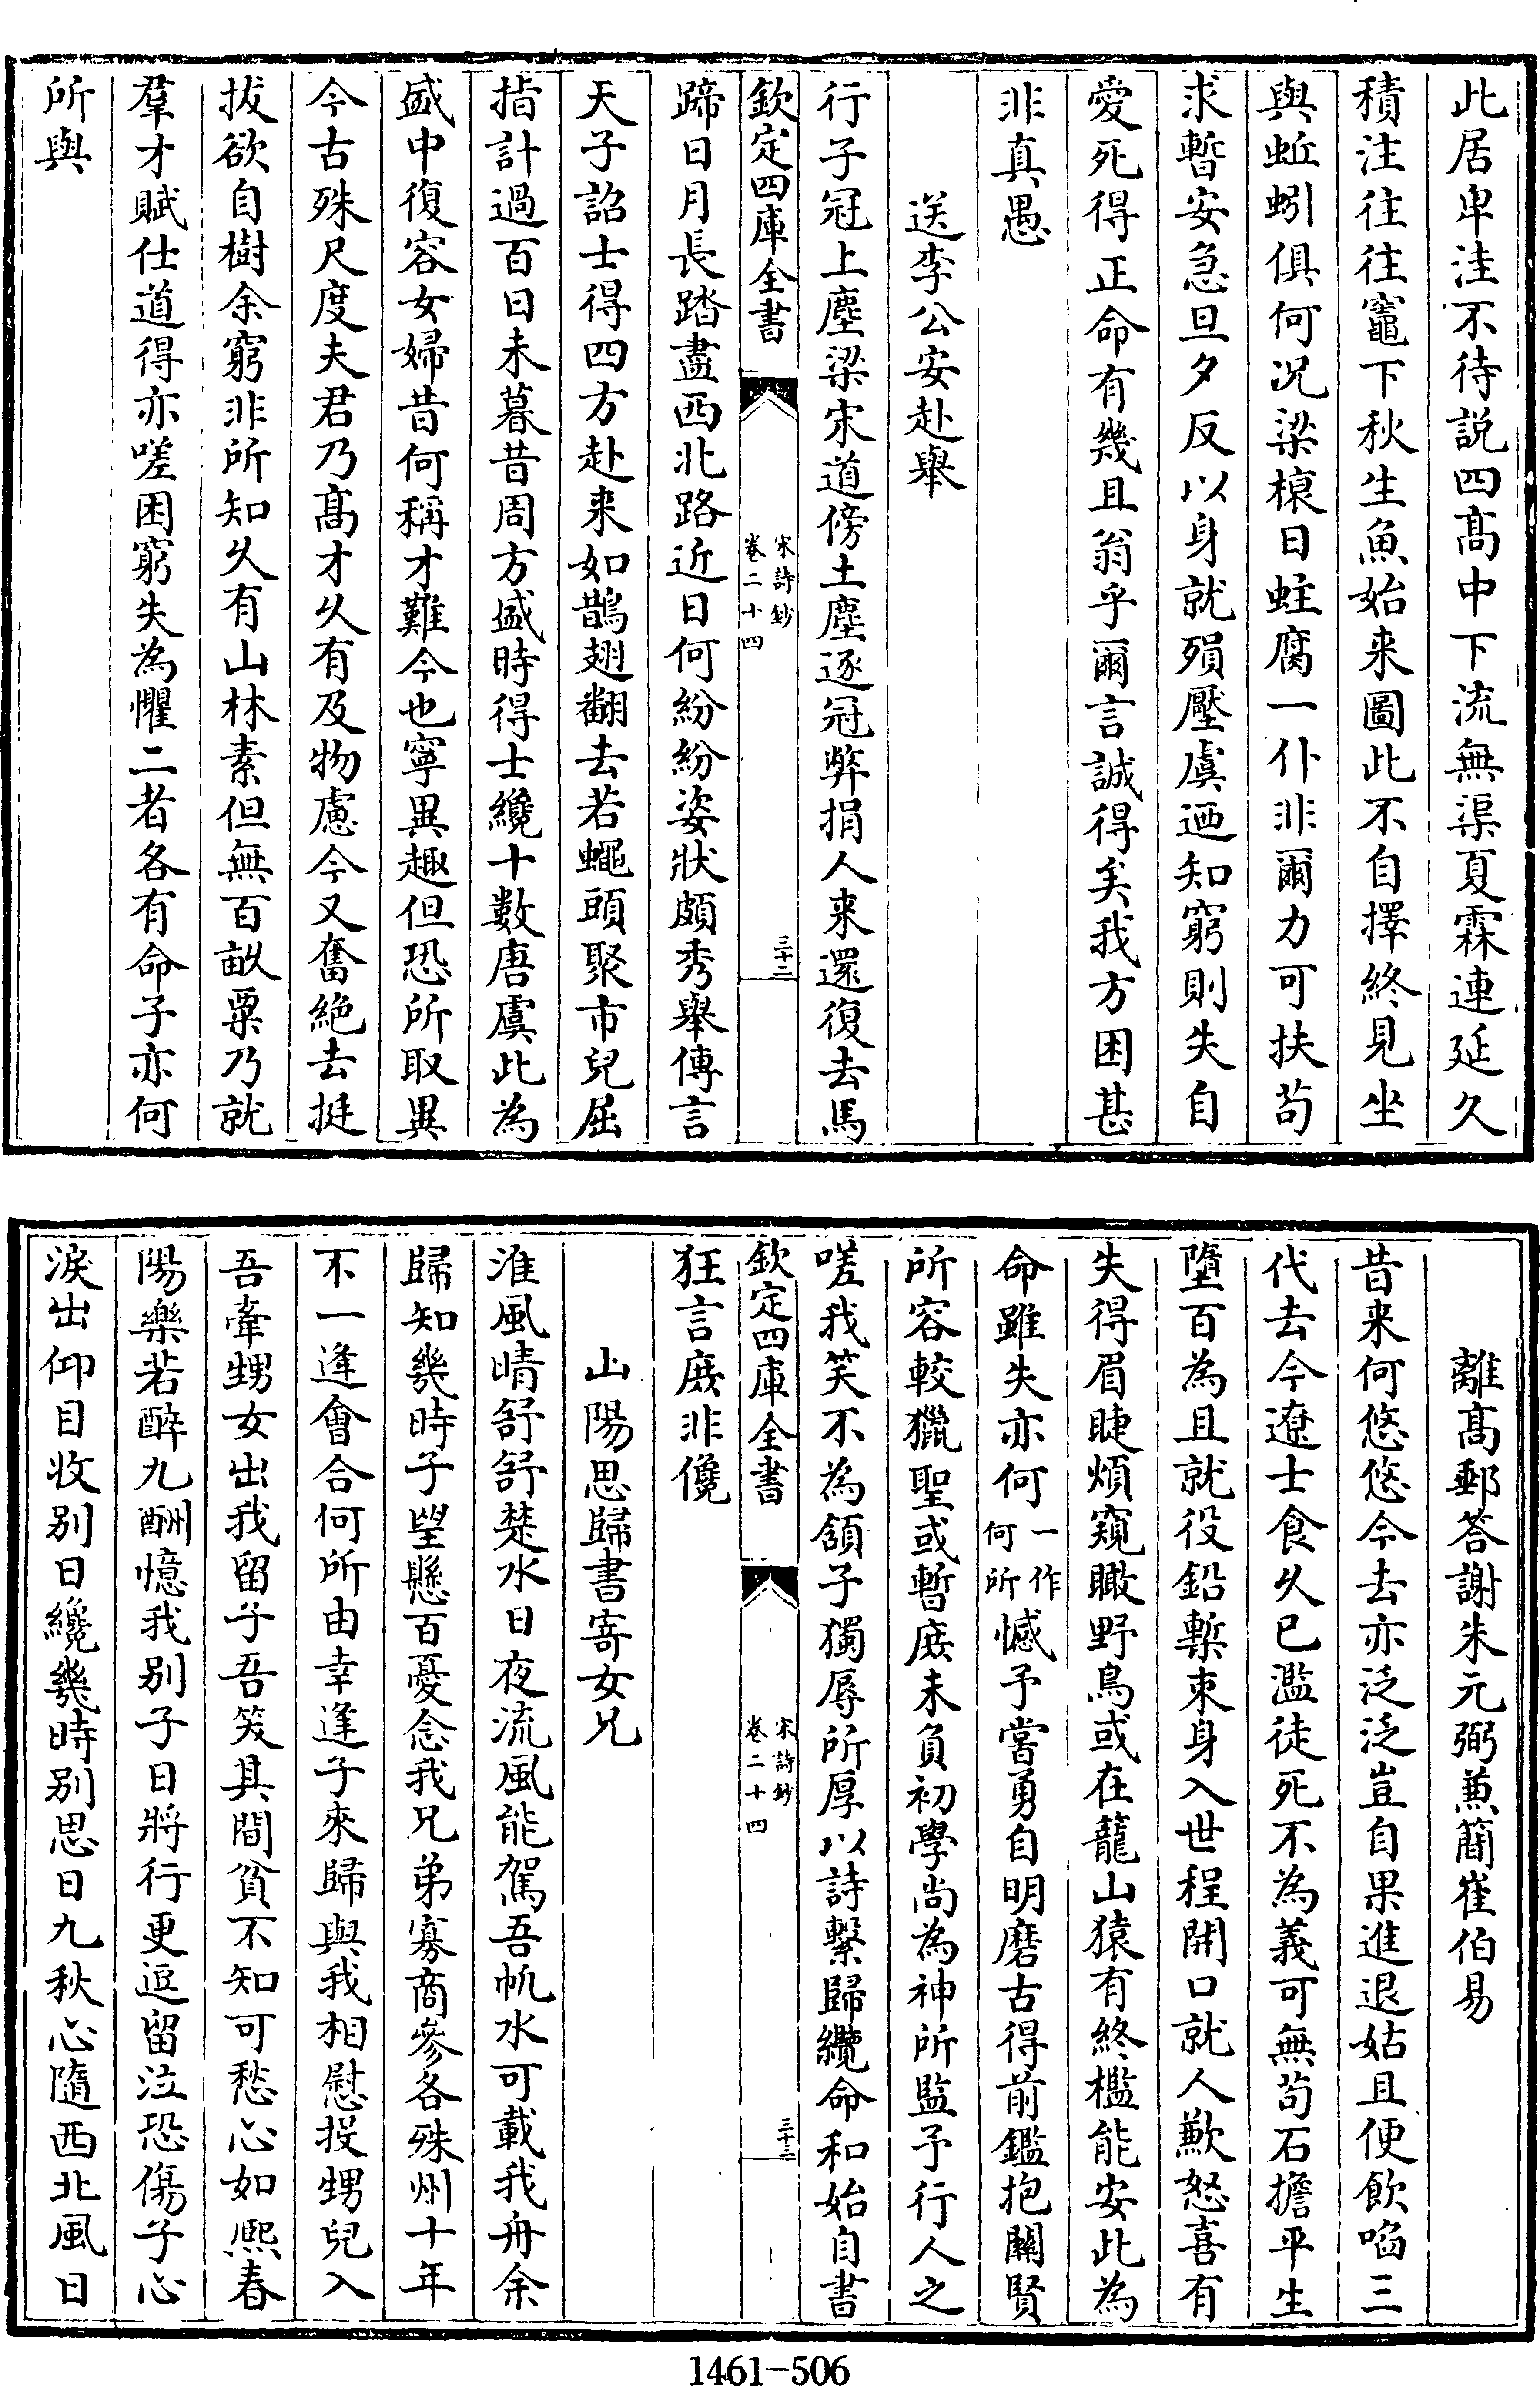 此居卑洼不待説四髙中下流無渠夏霖連延久
積注往往竈下秋生魚始来圖此不自擇終見坐
與蚯蚓俱何况梁榱日蛀腐一仆非爾力可扶苟
求暫安急旦夕反以身就殞壓虞迺知窮則失自
愛死得正命有幾且翁乎爾言誠得矣我方困甚
非真愚
送李公安赴舉
行子冠上塵梁宋道傍土塵逐冠弊捐人来還復去馬
欽定四庫全書
宋詩鈔
卷二十四
三十二
蹄日月長踏盡西北路近日何紛紛姿狀頗秀舉傳言
天子詔士得四方赴来如鵲翅翻去若蠅頭聚市兒屈
指計過百日未暮昔周方盛時得士纔十數唐虞此為
盛中復容女婦昔何稱才難今也寧異趣但恐所取異
今古殊尺度夫君乃髙才乆有及物慮今又奮絶去挺
拔欲自樹余窮非所知乆有山林素但無百畝粟乃就
羣才賦仕道得亦嗟困窮失為懼二者各有命子亦何
所與
離髙郵答謝朱元弼兼簡崔伯易
昔来何悠悠今去亦泛泛豈自果進退姑且便飲啗三
代去今遼士食乆已濫徒死不為義可無苟石擔平生
墮百為且就役鉛槧束身入世程開口就人歉怒喜有
失得眉睫煩窺瞰野鳥或在蘢山猿有終檻能安此為
命雖失亦何一作何所憾予嘗勇自明磨古得前鑑抱關賢
所容較獵聖或暫庶未負初學尚為神所監予行人之
嗟我笑不為頷子獨辱所厚以詩繫歸纜命和始自書
欽定四庫全書
宋詩鈔
卷二十四
三十三
狂言庶非儳
山陽思歸書寄女兄
淮風晴舒舒楚水日夜流風能駕吾帆水可載我舟余
歸知幾時子望懸百憂念我兄弟寡商參各殊州十年
不一逢會合何所由幸逢子來歸與我相慰投甥兒入
吾牽甥女出我留子吾笑其間貧不知可愁心如熙春
陽樂若醉九酬憶我别子日將行更逗留泣恐傷子心
淚出仰目收别日纔幾時别思日九秋心隨西北風日
1461-506